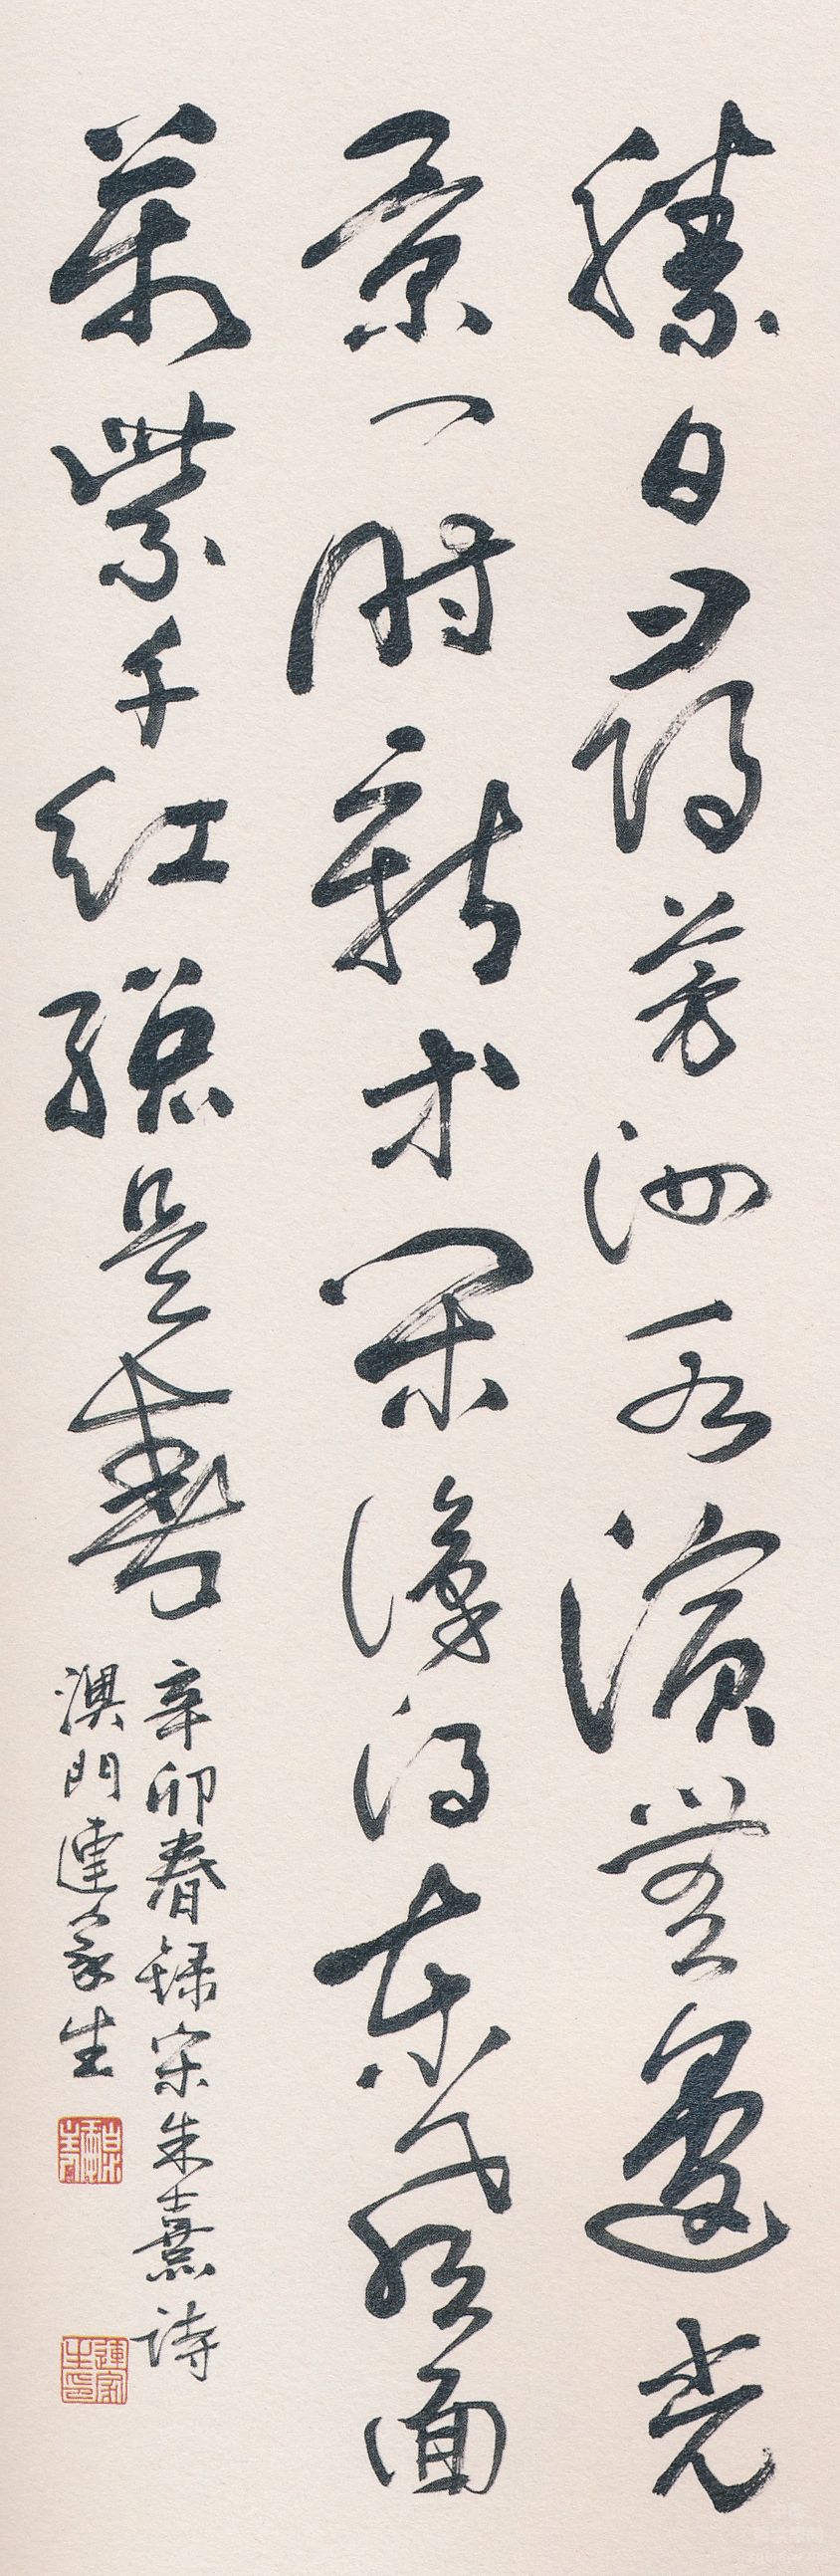 勝日尋芳泗水濱無邊光
景一時新等閑識得東風面
萬紫千紅總是春
辛卯春錄宋朱熹詩
澳門連家生
連家生印